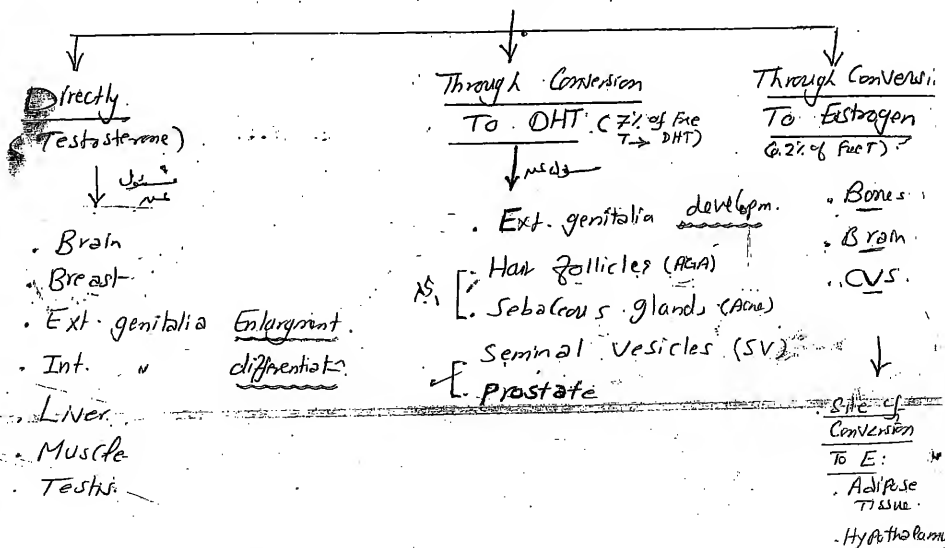 Directly
(Testosterone)
مسئول
عن
. Brain
. Breast
. Ext. genitalia Enlargment.
. Int. " differentiat.
. Liver
. Muscle
. Testis.
Through Conversion
To DHT (7% of Free
T → DHT)
مسئول عن
. Ext. genitalia developm.
. Hair follicles (AGA)
. Sebaceous glands (Acne)
Seminal Vesicles (SV)
. Prostate
Through Conversi
To Estrogen
(0.2% of Free T)
. Bones
. Brain
. CVS.
. Site of
Conversion
To E:
. Adipose
Tissue.
. Hypothalamu